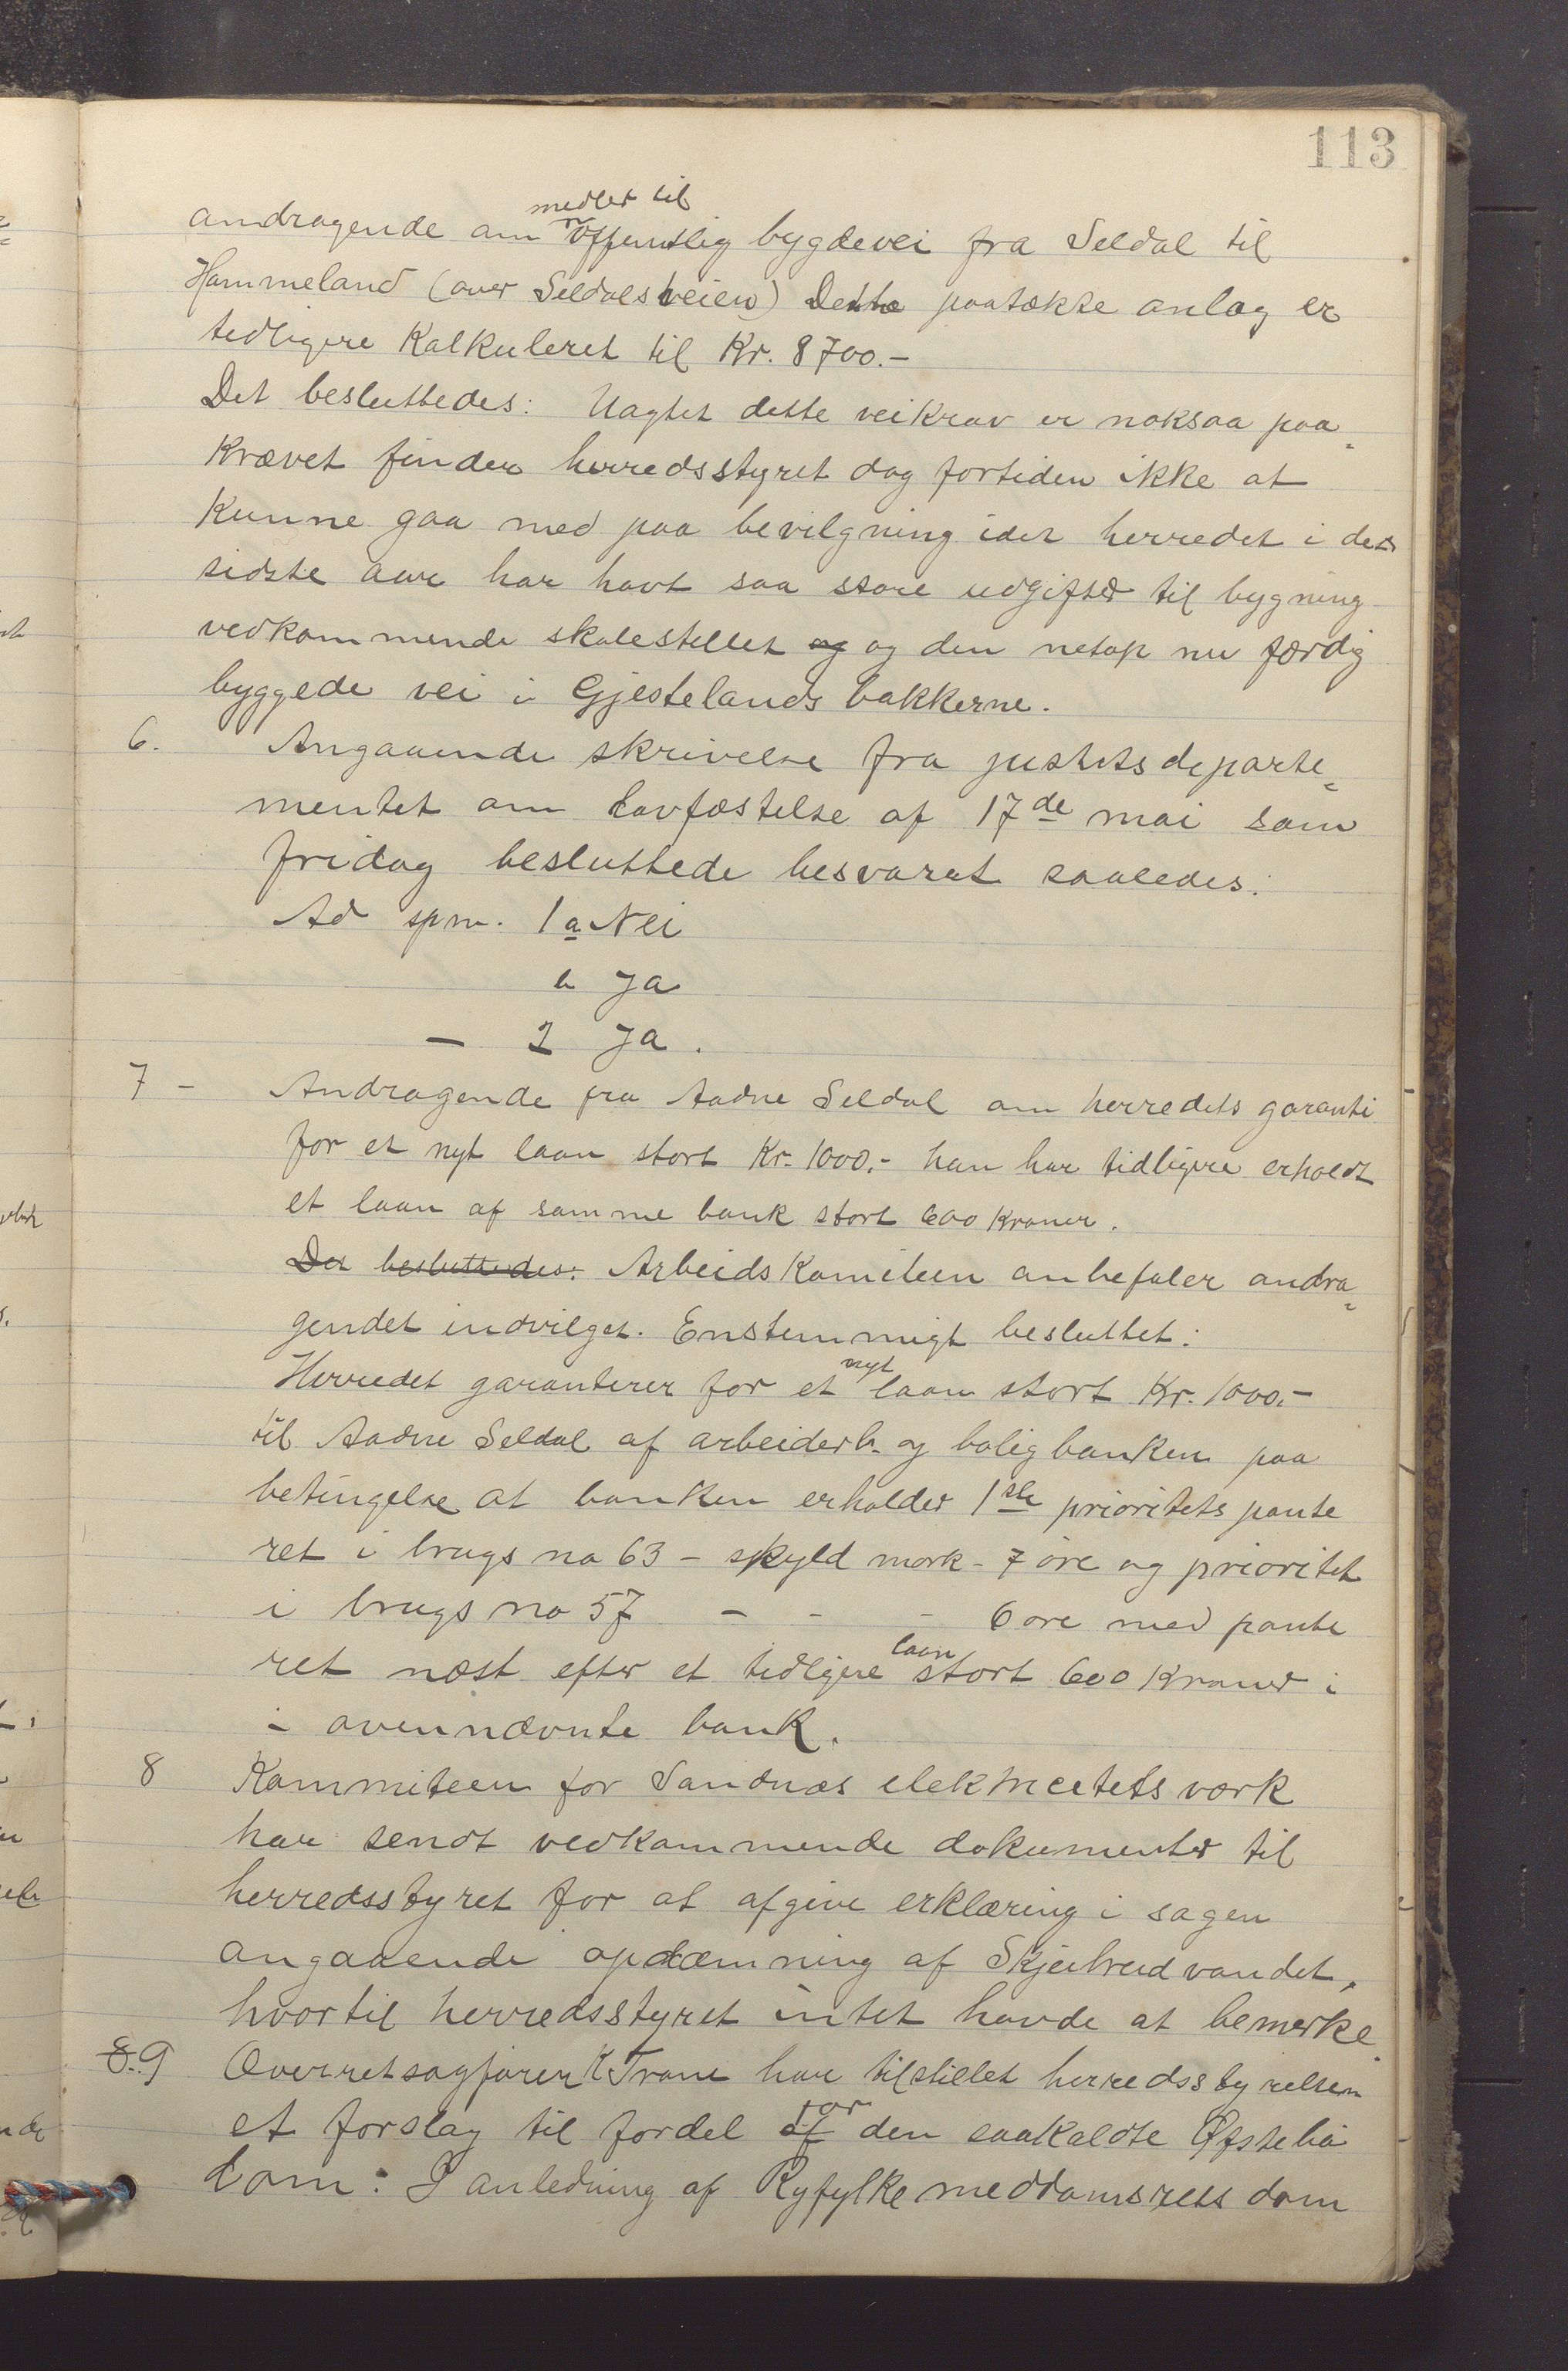 113
medler til
andragende om offentlig bygdevei fra Seldal til
Hommeland (over Seldalsheien) Dette paatækte anlæg er
tidligere Kalkuleret til Kr. 8700.-
Det besluttedes: Uagtet dette veikrav er noksaa paa-
krævet finder herredsstyret dog fortiden ikke at
kunne gaa med paa bevilgning idet herredet i de
sidste aar har havt saa store udgifter til bygning
vedkommende skolestellet og og den netop nu færdig
byggede vei i Gjestelands bakkerne.
6. Angaaende skrivelse fra justitsdeparte-
mentet om Lovfæstelse af 17de mai som
fridag besluttede besvaret saaledes:
Ad spm. 1 a Nei
b Ja
- 2 Ja.
7 - Andragende fra Aadne Seldal om herredets garanti
for et nyt laan stort Kr. 1000.- han har tidligere erholdt
et laan af samme bank stort 600 Kroner.
Det besluttedes: Arbeidskomiteen anbefaler andra-
gendet indvilget. Enstemmigt besluttet:
Herredet garanterer for et nyt laan stort Kr. 1000.-
til Aadne Seldal af arbeiderb. og boligbanken paa
betingelse at banken erholder 1ste prioritets pante
ret i brugs no 63 - skyld mark - 7 øre og prioritet
i brugs no 57 - - - 6 øre med pante
ret næst efter et tidligere laan stort 600 Kroner i
i ovennævnte bank.
8 Kommiteen for Sandnæs elektricitetsværk
har sendt vedkommende dokumenter til
herredsstyret for at afgive erklæring i sagen
angaaende opdæmning af Skjelbreidvandet,
hvortil herredsstyret intet havde at bemerke.
8. 9 Overretsagfører K Trane har tilstillet herredsstyrelsen
et forslag til fordel af for den saakaldte Øfstebø
dom: I anledning af Ryfylke meddomsrets dom